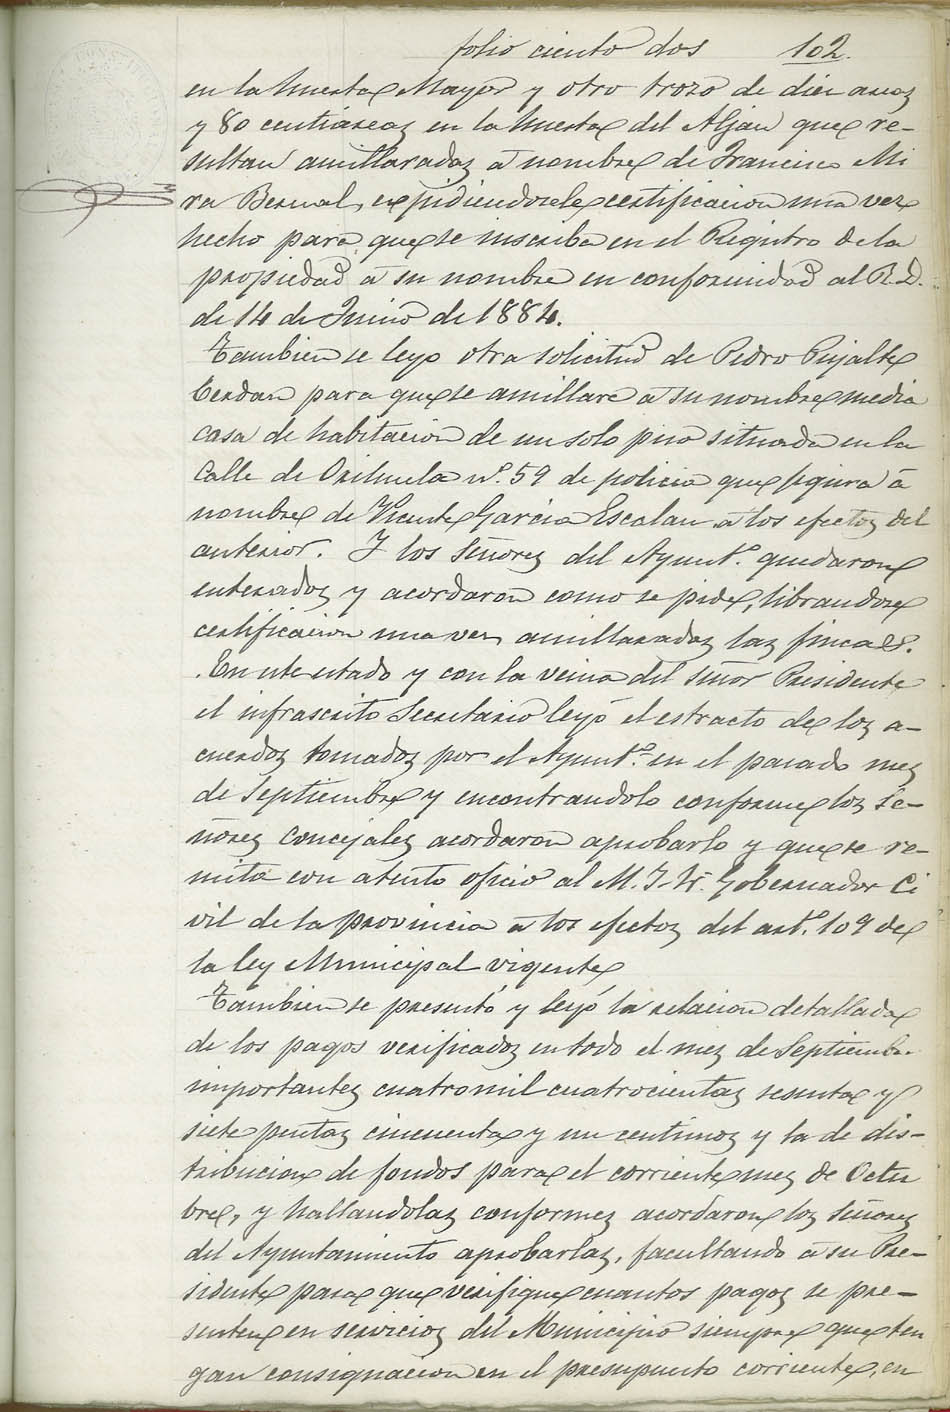 folio ciento dos 102.
en la huerta Mayor y otro trozo de diez areas
y 80 centiareas en la huerta del Aljau que re-
sultan amillaradas á nombre de Francisco Mi
ra Bernal, expidiendosele certificacion una vez
hecho para que se inscriba en el Registro de la
propiedad á su nombre en conformidad al R. D.
de 14 de Junio de 1884.
Tambien se leyo otra solicitud de Pedro Pujalte
Cerdan para que se amillare á su nombre media
casa de habitacion de un solo piso situada en la
Calle de Orihuela nº. 59 de policia que figura á
nombre de Vicente Garcia Escolan á los efectos del
anterior. Y los Señores del Ayuntº. quedaron
enterados y acordaron como se pide, librandose
certificacion una vez amillaradas las fincas.
En este estado y con la venia del señor Presidente
el infrascrito Secretario leyó el estracto de los a-
cuerdos tomados por el Ayuntº. en el pasado mes
de Septiembre y encontrandolo conforme los Se-
ñores Concejales acordaron aprobarlo y que se re-
mita con atento oficio al M. I. Sr. Gobernador Ci
vil de la provincia á los efectos del artº. 109 de
la ley Municipal vigente
Tambien se presentó y leyó la relacion detallada
de los pagos verificados en todo el mes de Septiembre
importantes cuatro mil cuatrocientas sesenta y
siete pesetas cincuenta y un centimos y la de dis-
tribucion de fondos para el corriente mes de Octu
bre, y hallandolas conformes acordaron los Señores
del Ayuntamiento aprobarlas, facultando á su Pre-
sidente para que verifique cuantos pagos se pre-
senten en servicios del Municipio siempre que ten
gan consignacion en el presupuesto corriente, en